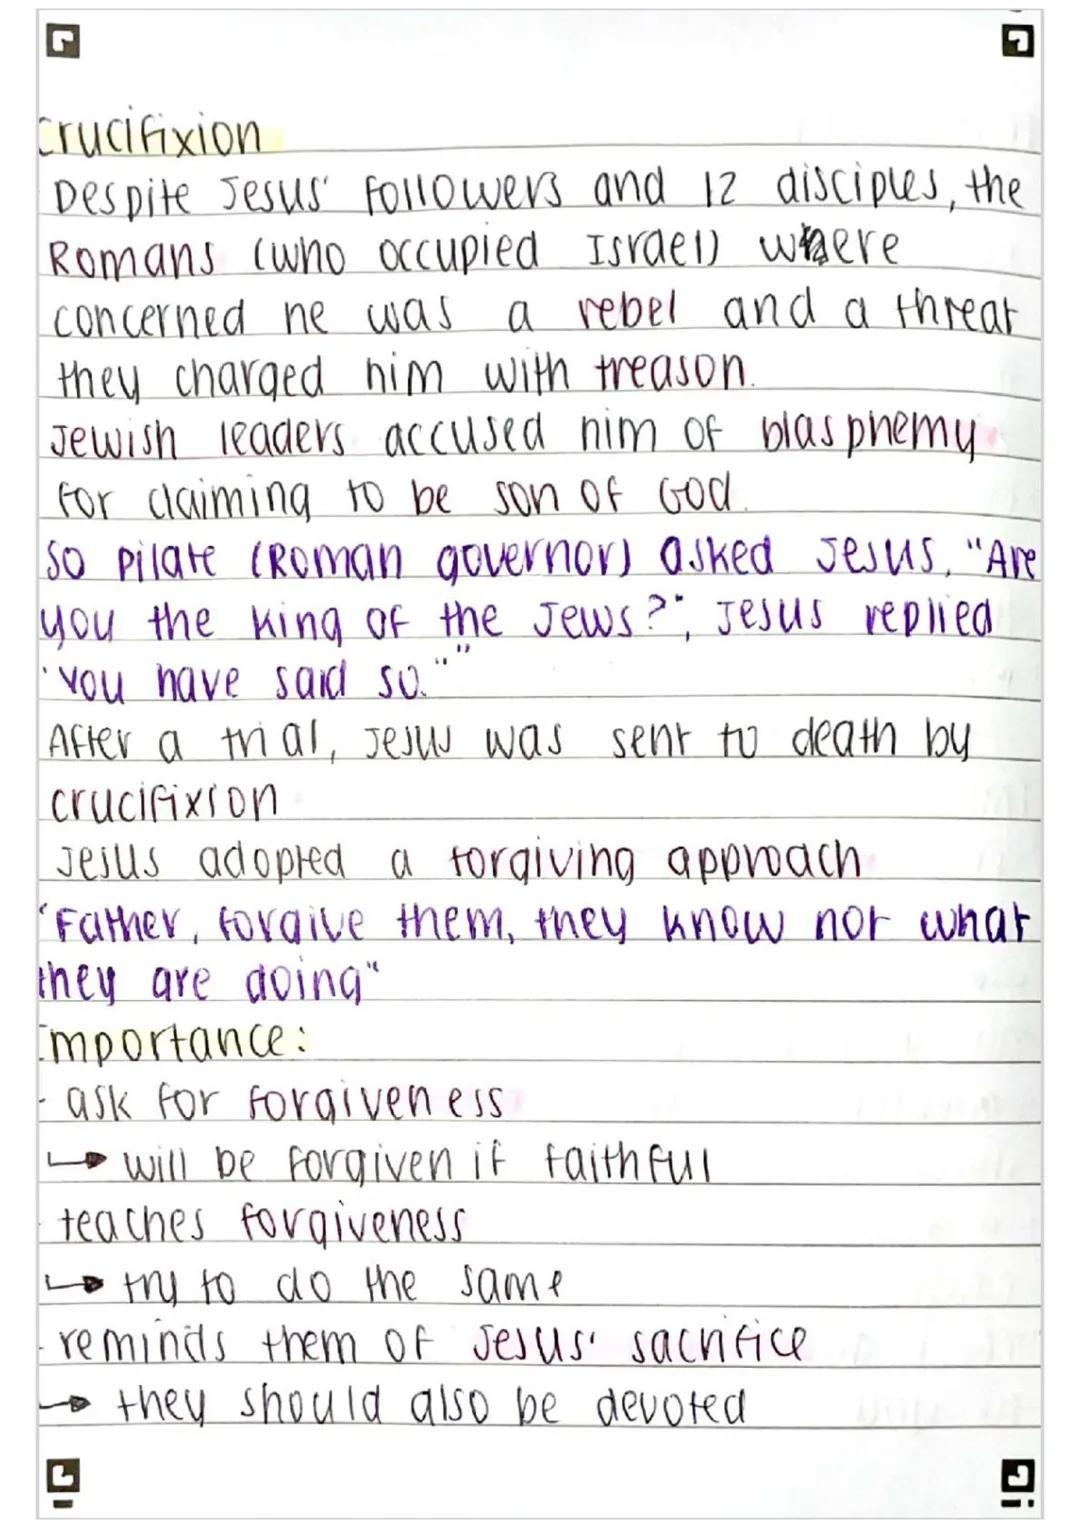 Crucifixion
Despite Jesus' followers and 12 disciples, the
Romans (who occupied Israel) where
concerned he was a rebel and a threat
they charged him with treason.
Jewish leaders accused him of blasphemy
for claiming to be son of God.
So Pilate (Roman governor) asked Jesus, "Are
you the king of the Jews?", Jesus replied
"You have said so.""
After a trial, Jesus was sent to death by
crucifixion
Jesus adopted a forgiving approach
"Father, forgive them, they know not what
they are doing"
Importance:
- ask for forgiveness
↳ will be forgiven if faithful
- teaches forgiveness
↳ try to do the same
- reminds them of Jesus' sacrifice
→ they should also be devoted